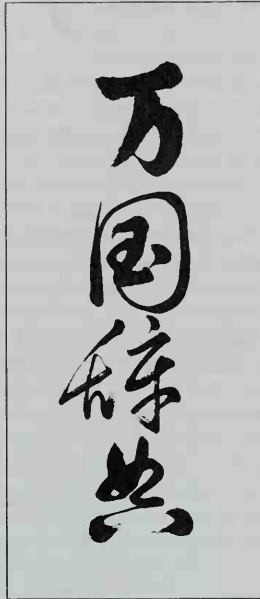 万国辞典